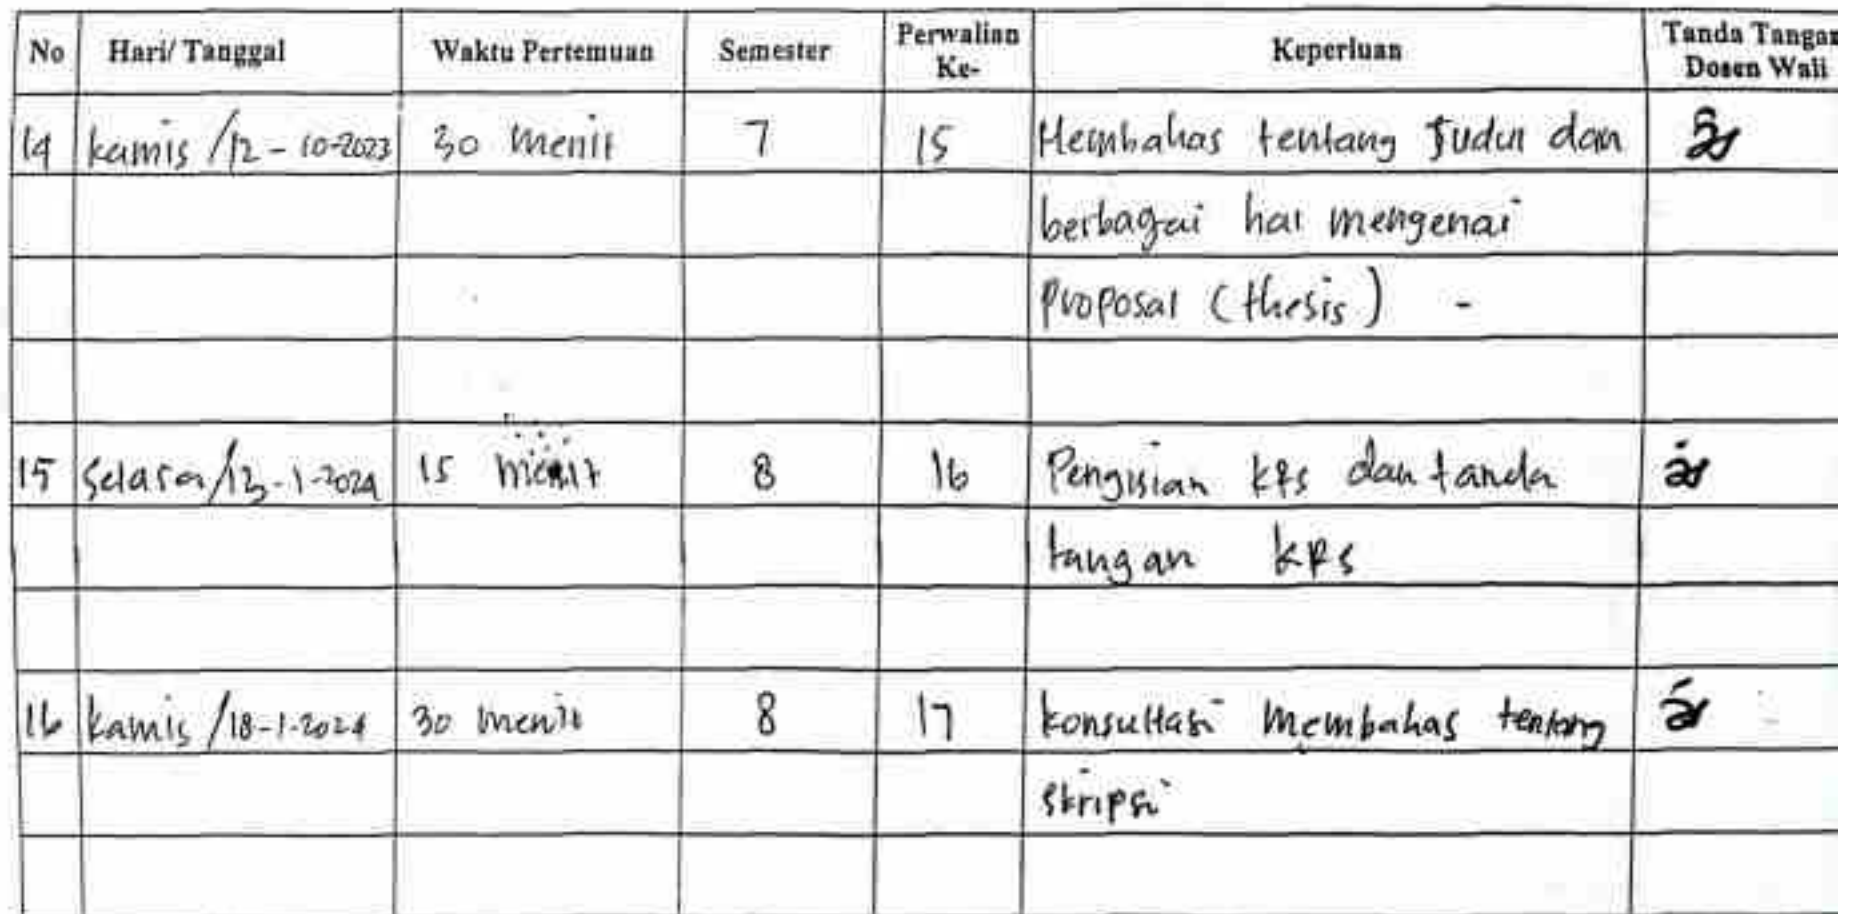 No Hari/ Tanggal Waktu Pertemuan Semester Perwalian Ke- Keperluan Tanda Tangan Dosen Wali
14 kamis /12 - 10-2023 30 menit 7 15 Membahas tentang Judul dan
berbagai hal mengenai
proposal (thesis) -
15 Selasa / -1-2024 15 menit 8 16 Pengisian KRS dan tanda
tangan KRS
16 kamis /18-1-2024 30 menit 8 17 konsultasi membahas tentang
skripsi